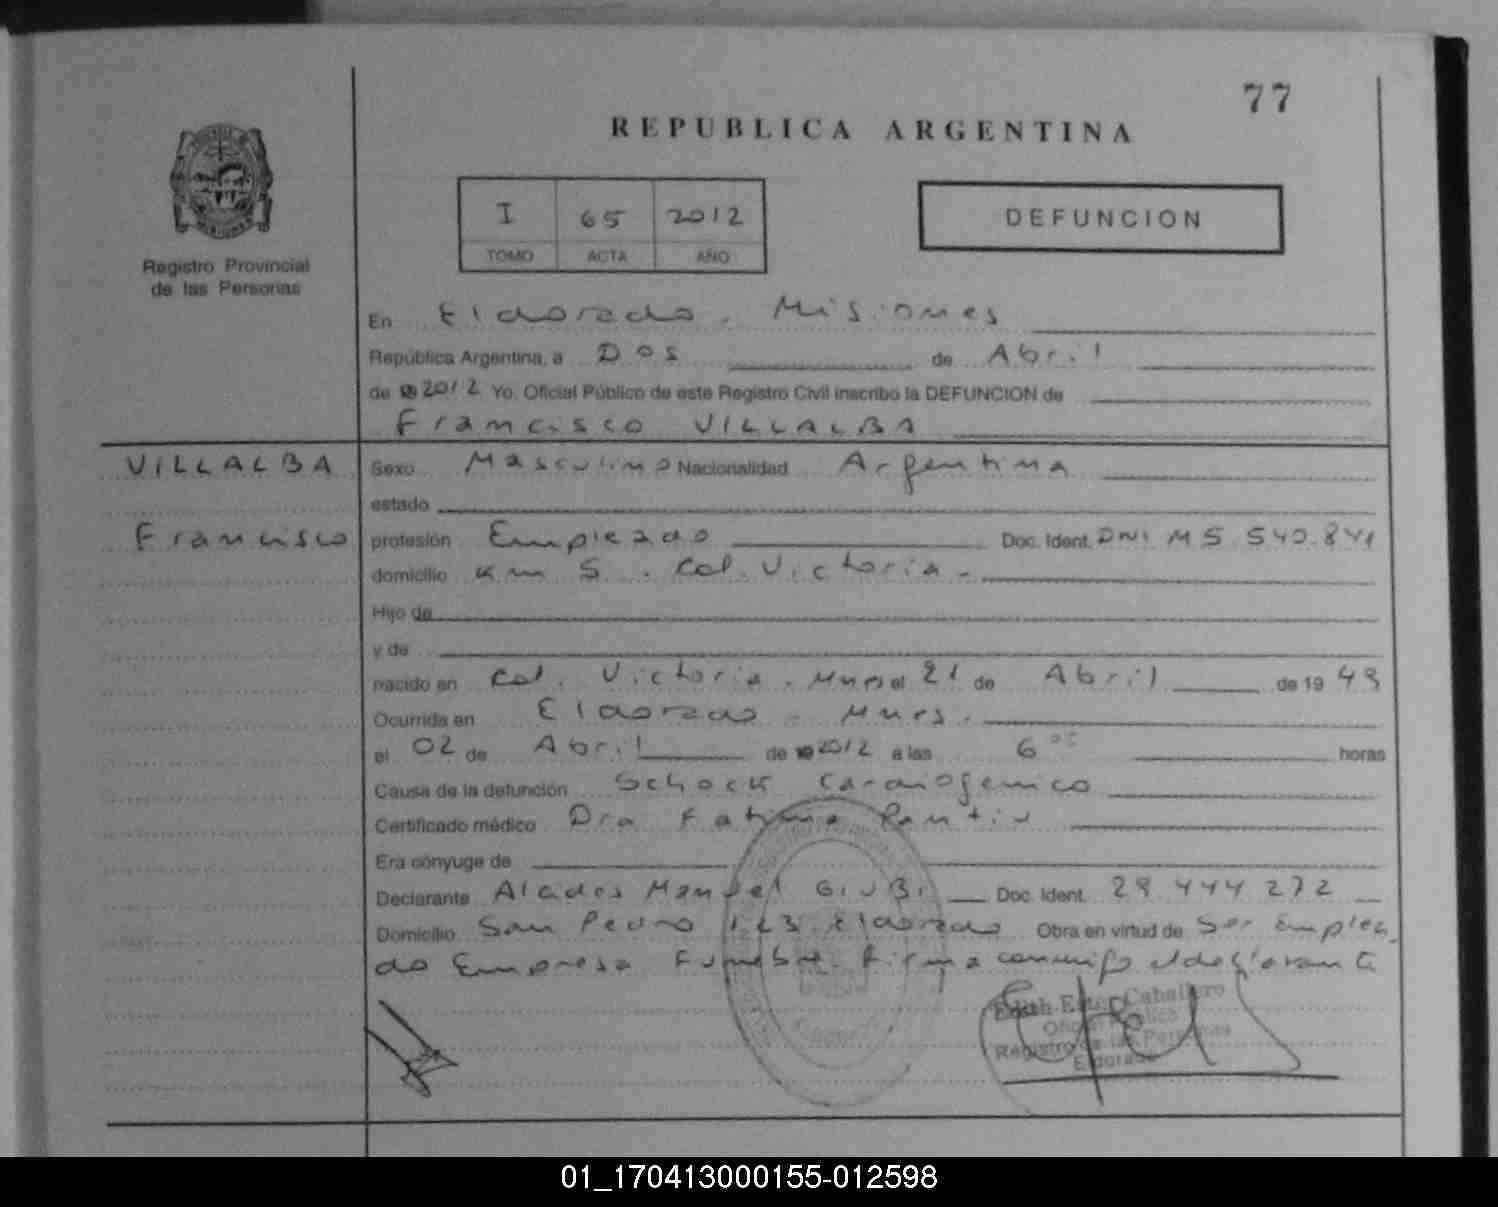 77
REPUBLICA ARGENTINA
I 65 2012
TOMO ACTA AÑO
DEFUNCION
Registro Provincial
de las Personas
En Eldorado. Misiones
República Argentina, a Dos de Abril
de 2012 Yo, Oficial Público de este Registro Civil inscribo la DEFUNCION de
Francisco VILLALBA
VILLALBA
Francisco
Sexo Masculino Nacionalidad Argentina
estado
profesión Empleado Doc. Ident. DNI M 5.540.841
domicilio Km 5. Col. Victoria.
Hijo de
y de
nacido en Col. Victoria. Mnes el 21 de Abril de 19 49
Ocurrida en Eldorado. Mnes.
el 02 de Abril de 2012 a las 6 horas
Causa de la defunción Schock Cardiogenico
Certificado médico Dra Fatima
Era cónyuge de
Declarante Manuel Doc. Ident. 29.444.272
Domicilio San Pedro Eldorado Obra en virtud de Ser Emplea
do Empresa Funebre. Firma conmigo el declarante
Edith Ester Caballero
Oficial Público
Registro de las Personas
Eldorado
01_170413000155-012598